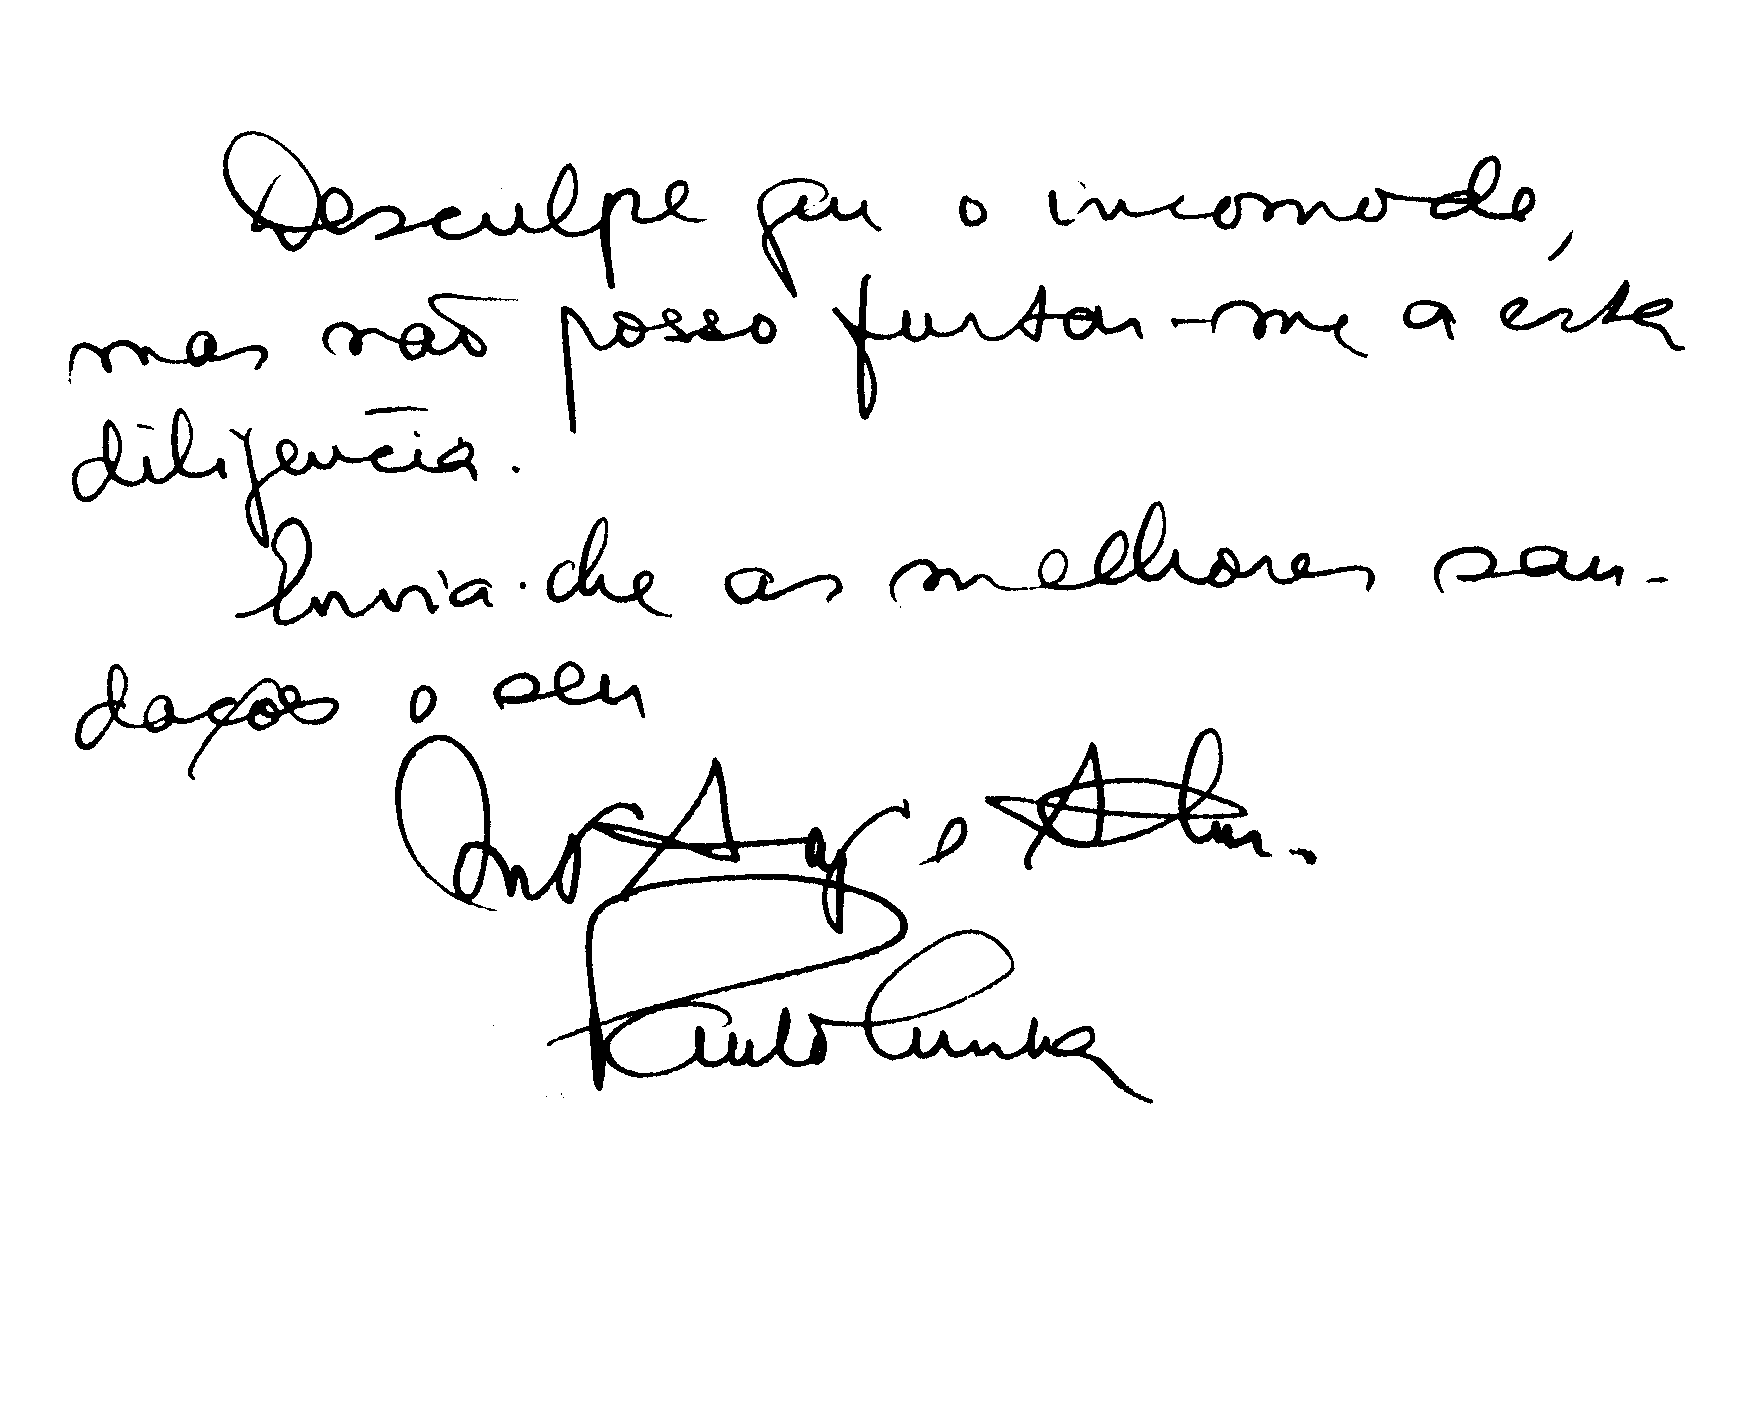 Desculpe que o incomode,
mas não posso furtar-me a esta
diligência.
Envia-lhe as melhores sau-
dações o seu
e
Paulo Cunha